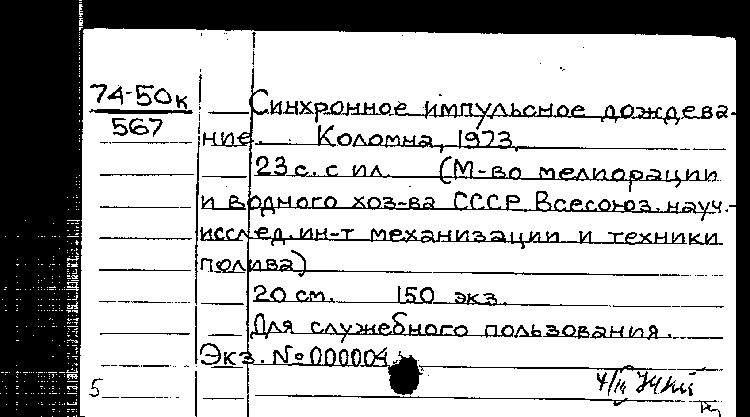 74-50к
567
Синхронное импульсное дождева-
ние. Коломна, 1973.
23 с. с ил. (М-во мелиорации
и водного хоз-ва СССР. Всесоюз. науч.-
исслед. ин-т механизации и техники
полива)
20 см. 150 экз.
Для служебного пользования.
Экз. №000004
5